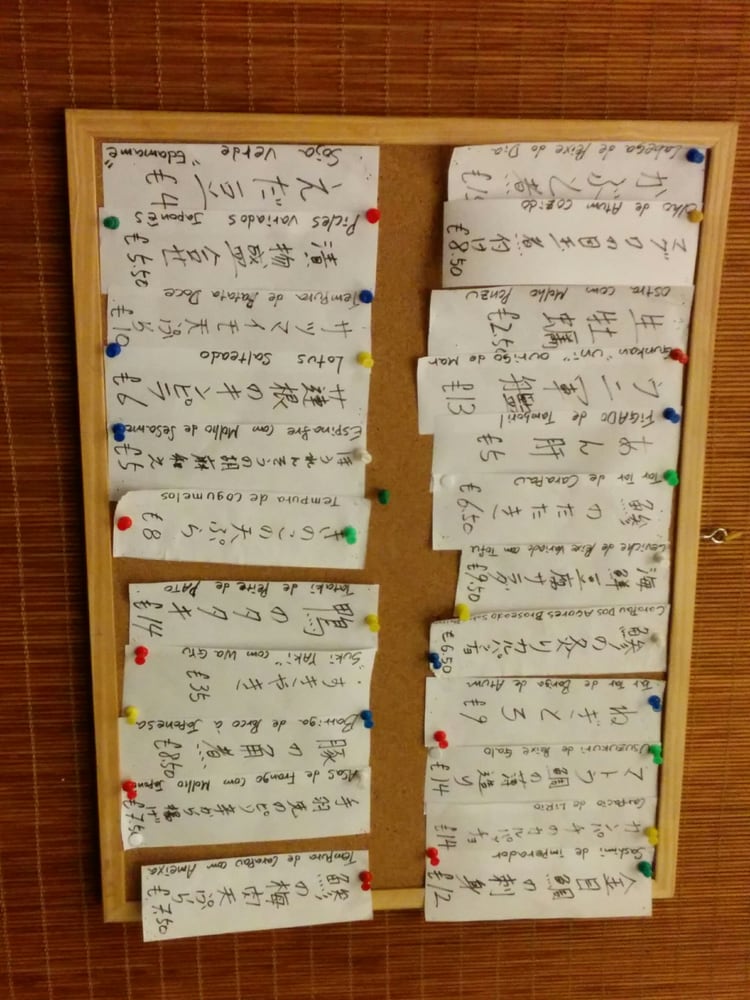 金目鯛の刺身 £12
Sashimi de imperador
カンパチのカルパッチョ £14
Carpacio de Lirio
マトウ鯛の薄造り £14
Usuzukuri de Peixe Galo
ねぎとろ £9
Tar Tar de Barriga de Atum
鯵の炙り £6.50
Carapau Dos Açores Braseado
海鮮豆腐サラダ £9.50
Ceviche de Peixe Variado com Tofu
鯵のたたき £6.50
Tar Tar de Carapau
あん肝 £5
FiGADO de Tamboril
ウニ軍艦 £13
Gunkan "Uni" ouriço do Mar
生牡蠣 £2.50
Ostra com Molho Ponzu
マグロの目玉煮付け £8.50
Olho de Atum cozido
かぶと煮
Cabeça de Peixe do Dia
鯵の梅肉天ぷら £7.50
Tempura de Carapau com Ameixa
手羽先のピリ辛から揚げ £7.50
Asas de Frango com Molho
豚の角煮 £8.50
Barriga de Porco à Japonesa
すきやき £35
"SUKI YAKI" com WAGYU
鴨のタタキ £14
Tataki de Peito de PATO
きのこの天ぷら £8
Tempura de Cogumelos
ほうれんそうの胡麻和え £5
Espinafre com Molho de Sesame
蓮根のキンピラ £6
Lotus Salteado
サツマイモ天ぷら £10
Tempura de Batata Doce
漬物盛合せ £5.50
Picles Variados Japonês
えだ豆 £4
Soja Verde "Edamame"